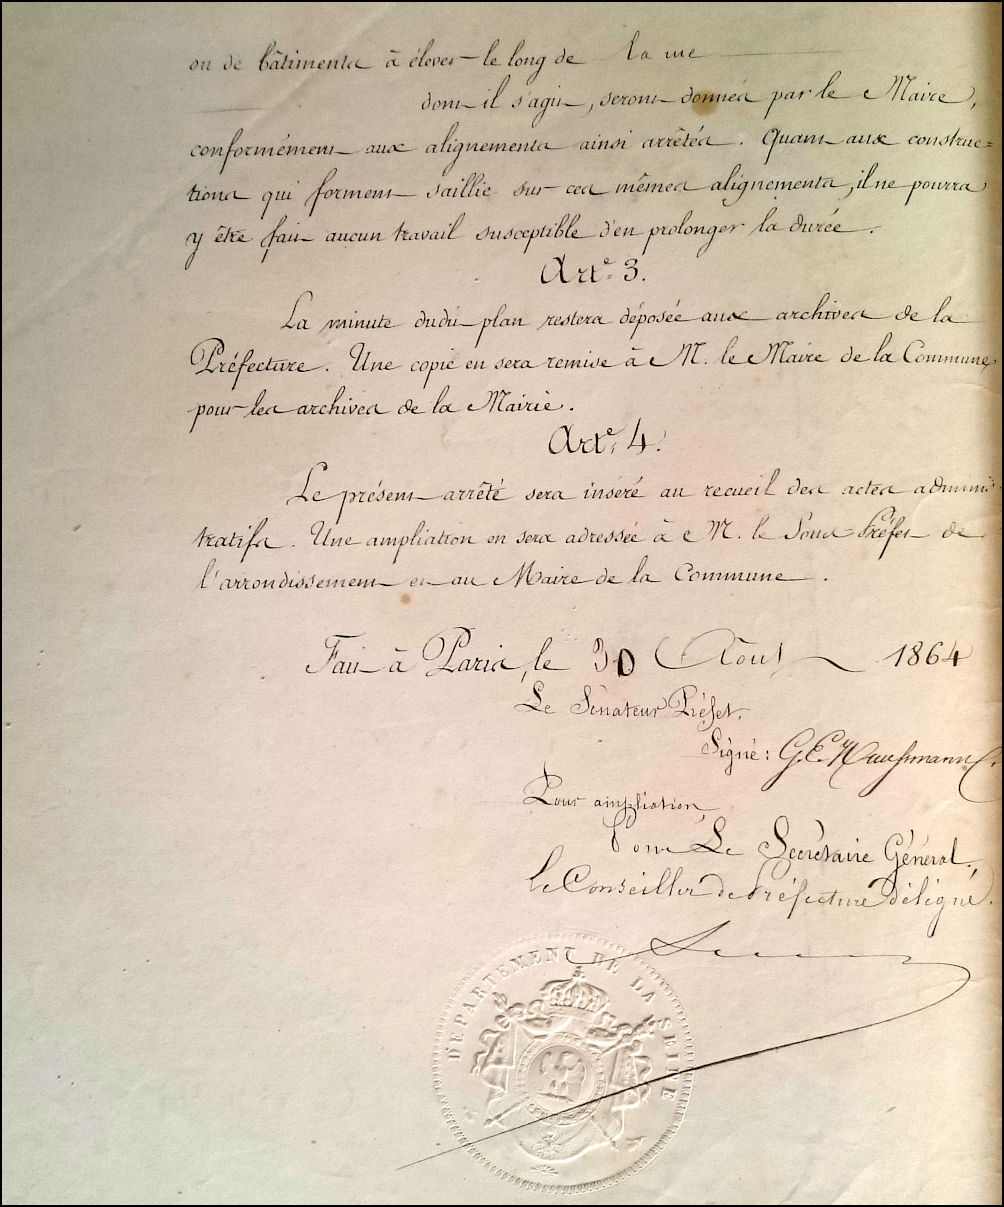 ou de bâtiments à élever le long de la rue
dont il s'agit, seront donnés par le Maire,
conformément aux alignements ainsi arrêtés. Quant aux construc=
tions qui forment saillie sur ces mêmes alignements, il ne pourra
y être fait aucun travail susceptible d'en prolonger la durée.
Arte. 3.
La minute dudit plan restera déposée aux archives de la
Préfecture. Une copie en sera remise à M. le Maire de la Commune,
pour les archives de la Mairie.
Arte. 4.
Le présent arrêté sera inséré au recueil des actes adminis-
tratifs. Une ampliation en sera adressée à M. le Sous-Préfet de
l'arrondissement et au Maire de la Commune.
Fait à Paris, le 30 Août 1864
Le Sénateur Préfet,
Signé: G. E. Haussmann.
Pour ampliation,
Pour Le Secrétaire Général.
le Conseiller de Préfecture délégué.
DEPARTEMENT DE LA SEINE